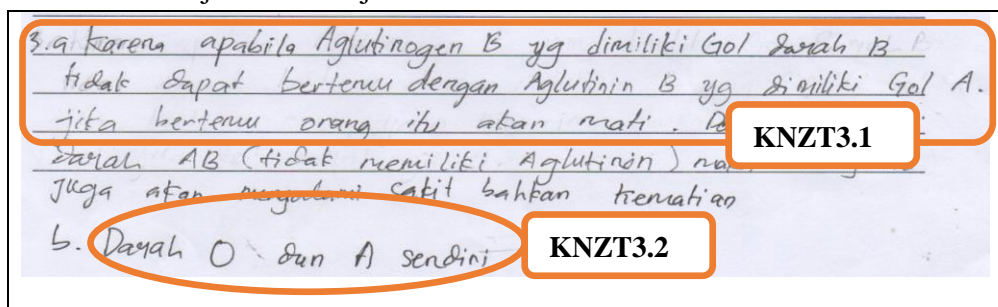 3.a Karena apabila Aglutinogen B yg dimiliki Gol darah B
tidak dapat bertemu dengan Aglutinin B yg dimiliki Gol A.
jika bertemu orang itu akan mati.
KNZT3.1
darah AB (tidak memiliki Aglutinin)
juga akan mengalami sakit bahkan kematian
b. Darah O dan A sendiri
KNZT3.2